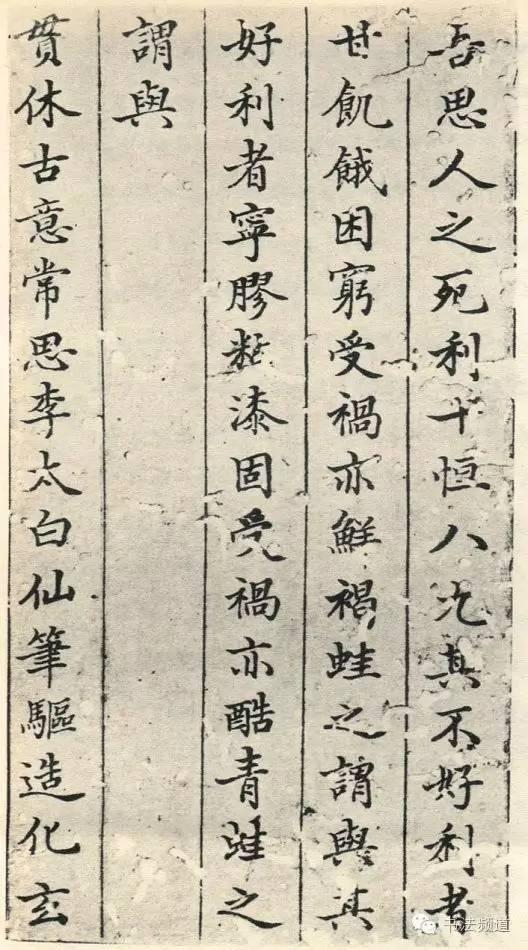 吾思人之死利十恒八九其不好利者
甘飢餓困窮受禍亦鮮褐蛙之謂與其
好利者寧膠黏漆固受禍亦酷青蛙之
謂與
貫休古意常思李太白仙筆驅造化玄
书法频道